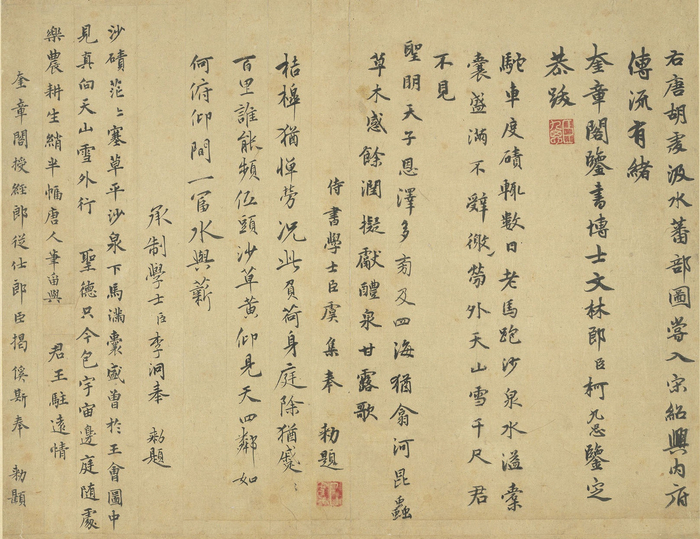 右唐胡虔汲水蕃部圖嘗入宋紹興内府
傳流有緒
奎章閣鑒書博士文林郎臣柯九思鑒定
恭跋
駝車度磧輒數日老馬跑沙泉水溢橐
囊盛滿不辭微勞外天山雪千尺君
不見
聖明天子恩澤多旁及四海猶翕河昆蟲
草木感餘潤擬獻醴泉甘露歌
侍書學士臣虞集奉 勑題
桔槔猶憚勞況此負荷身庭除猶蹙〻
百里誰能頻低頭沙草黄仰見天四鄰如
何俯仰間一富水與薪
承制學士臣李泂奉 勑題
沙磧茫〻塞草平沙泉下馬滿囊盛曾於王會圖中
見真向天山雪外行 聖德只今包宇宙邊庭随處
樂農耕生綃半幅唐人筆留與 君王駐遠情
奎章閣授經郎從仕郎臣揭傒斯奉 勑題